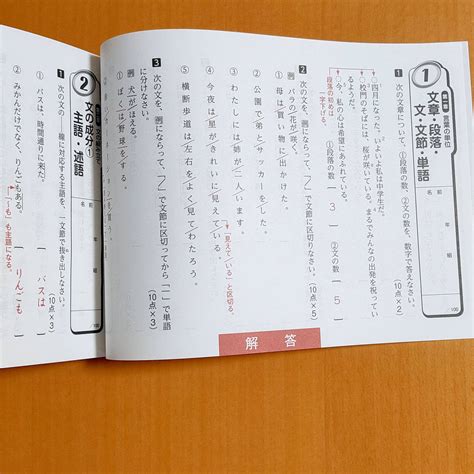 1
第一章 言葉の単位
文章・段落・
文・文節・単語
年 組
名前
/100
1 次の文章について、(1)段落の数 (2)文の数を、数字で答えなさい。
(10点×2)
四月になった。いよいよ私は中学生だ。
校門のそばには、桜が咲いている。まるでみんなの出発を祝っているようだ。
今、私の心は希望にあふれている。
段落の初めは一字下げる。
①段落の数 3
②文の数 5
2 次の文を、例にならって、「/」で文節に区切りなさい。
(10点×5)
例 バラの/花が/咲く。
① 母は/買い物に/出かけた。
② 公園で/弟と/サッカーを/した。
③ わたしには/姉が/二人/いる。
④ 今夜は/星が/きれいに/見えて/いる。
「見えて/いる」と区切る。
⑤ 横断歩道は/左右を/よく/見て/わたろう。
3 次の文を、例にならって、「/」で文節に区切ってから「―」で単語に分けなさい。
(10点×3)
例 犬が/ほえる。
① ぼくは/野球を/する。
解答
2
文の成分①
主語・述語
年 組
名前
/100
1 次の文の――線に対応する主語を、一文節で抜き出しなさい。
(10点×3)
① バスは、時間通りに来た。
バスは
② みかんだけでなく、りんごもある。
りんごも
「〜も」も主語になる。